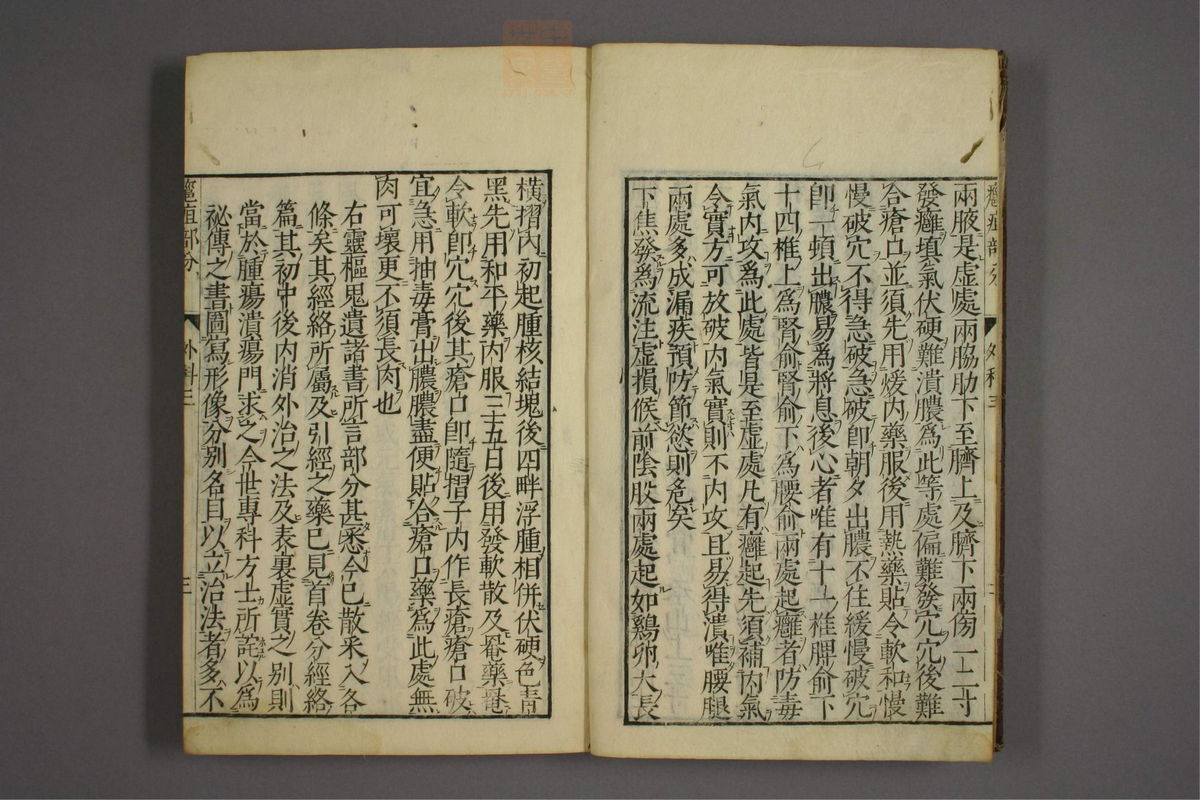 兩腋是虛處兩脇肋下至臍上及臍下兩傍一二寸
發癰填氣伏硬難潰膿爲此等處偏難發宂宂後難
合瘡口並須先用煖内藥服後用熱藥貼令軟和慢
慢破宂不得急破急破即朝夕出膿不住緩慢破宂
即一頓出膿易爲將息後心者唯有十一椎脾俞下
十四椎上爲腎俞腎俞下爲腰俞兩處起癰者防毒
氣内攻爲此處皆是至虛處凡有癰起先須補内氣
令實方可放破内氣實則不内攻且易得潰唯腰腿
兩處多成漏疾預防節慾則危矣
下焦發爲流注虛損候前陰股兩處起如鷄卵大長
外科三
橫摺内初起腫核結塊後四畔浮腫相併伏硬色青
黑先用和平藥内服三五日後用發軟散及罨藥罨
令軟即宂宂後其瘡口即隨摺子内作長瘡瘡口破
宜急用抽毒膏出膿膿盡便貼合瘡口藥爲此處無
肉可壞更不須長肉也
右靈樞鬼遺諸書所言部分甚悉今已散釆入各
條矣其經絡所屬及引經之藥已見首卷分經絡
篇其初中後内消外治之法及表裏虛實之別則
當於腫瘍潰瘍門求之今世專科方士所詫以爲
祕傳之書圖寫形像分別名目以立治法者多不
外科三
三